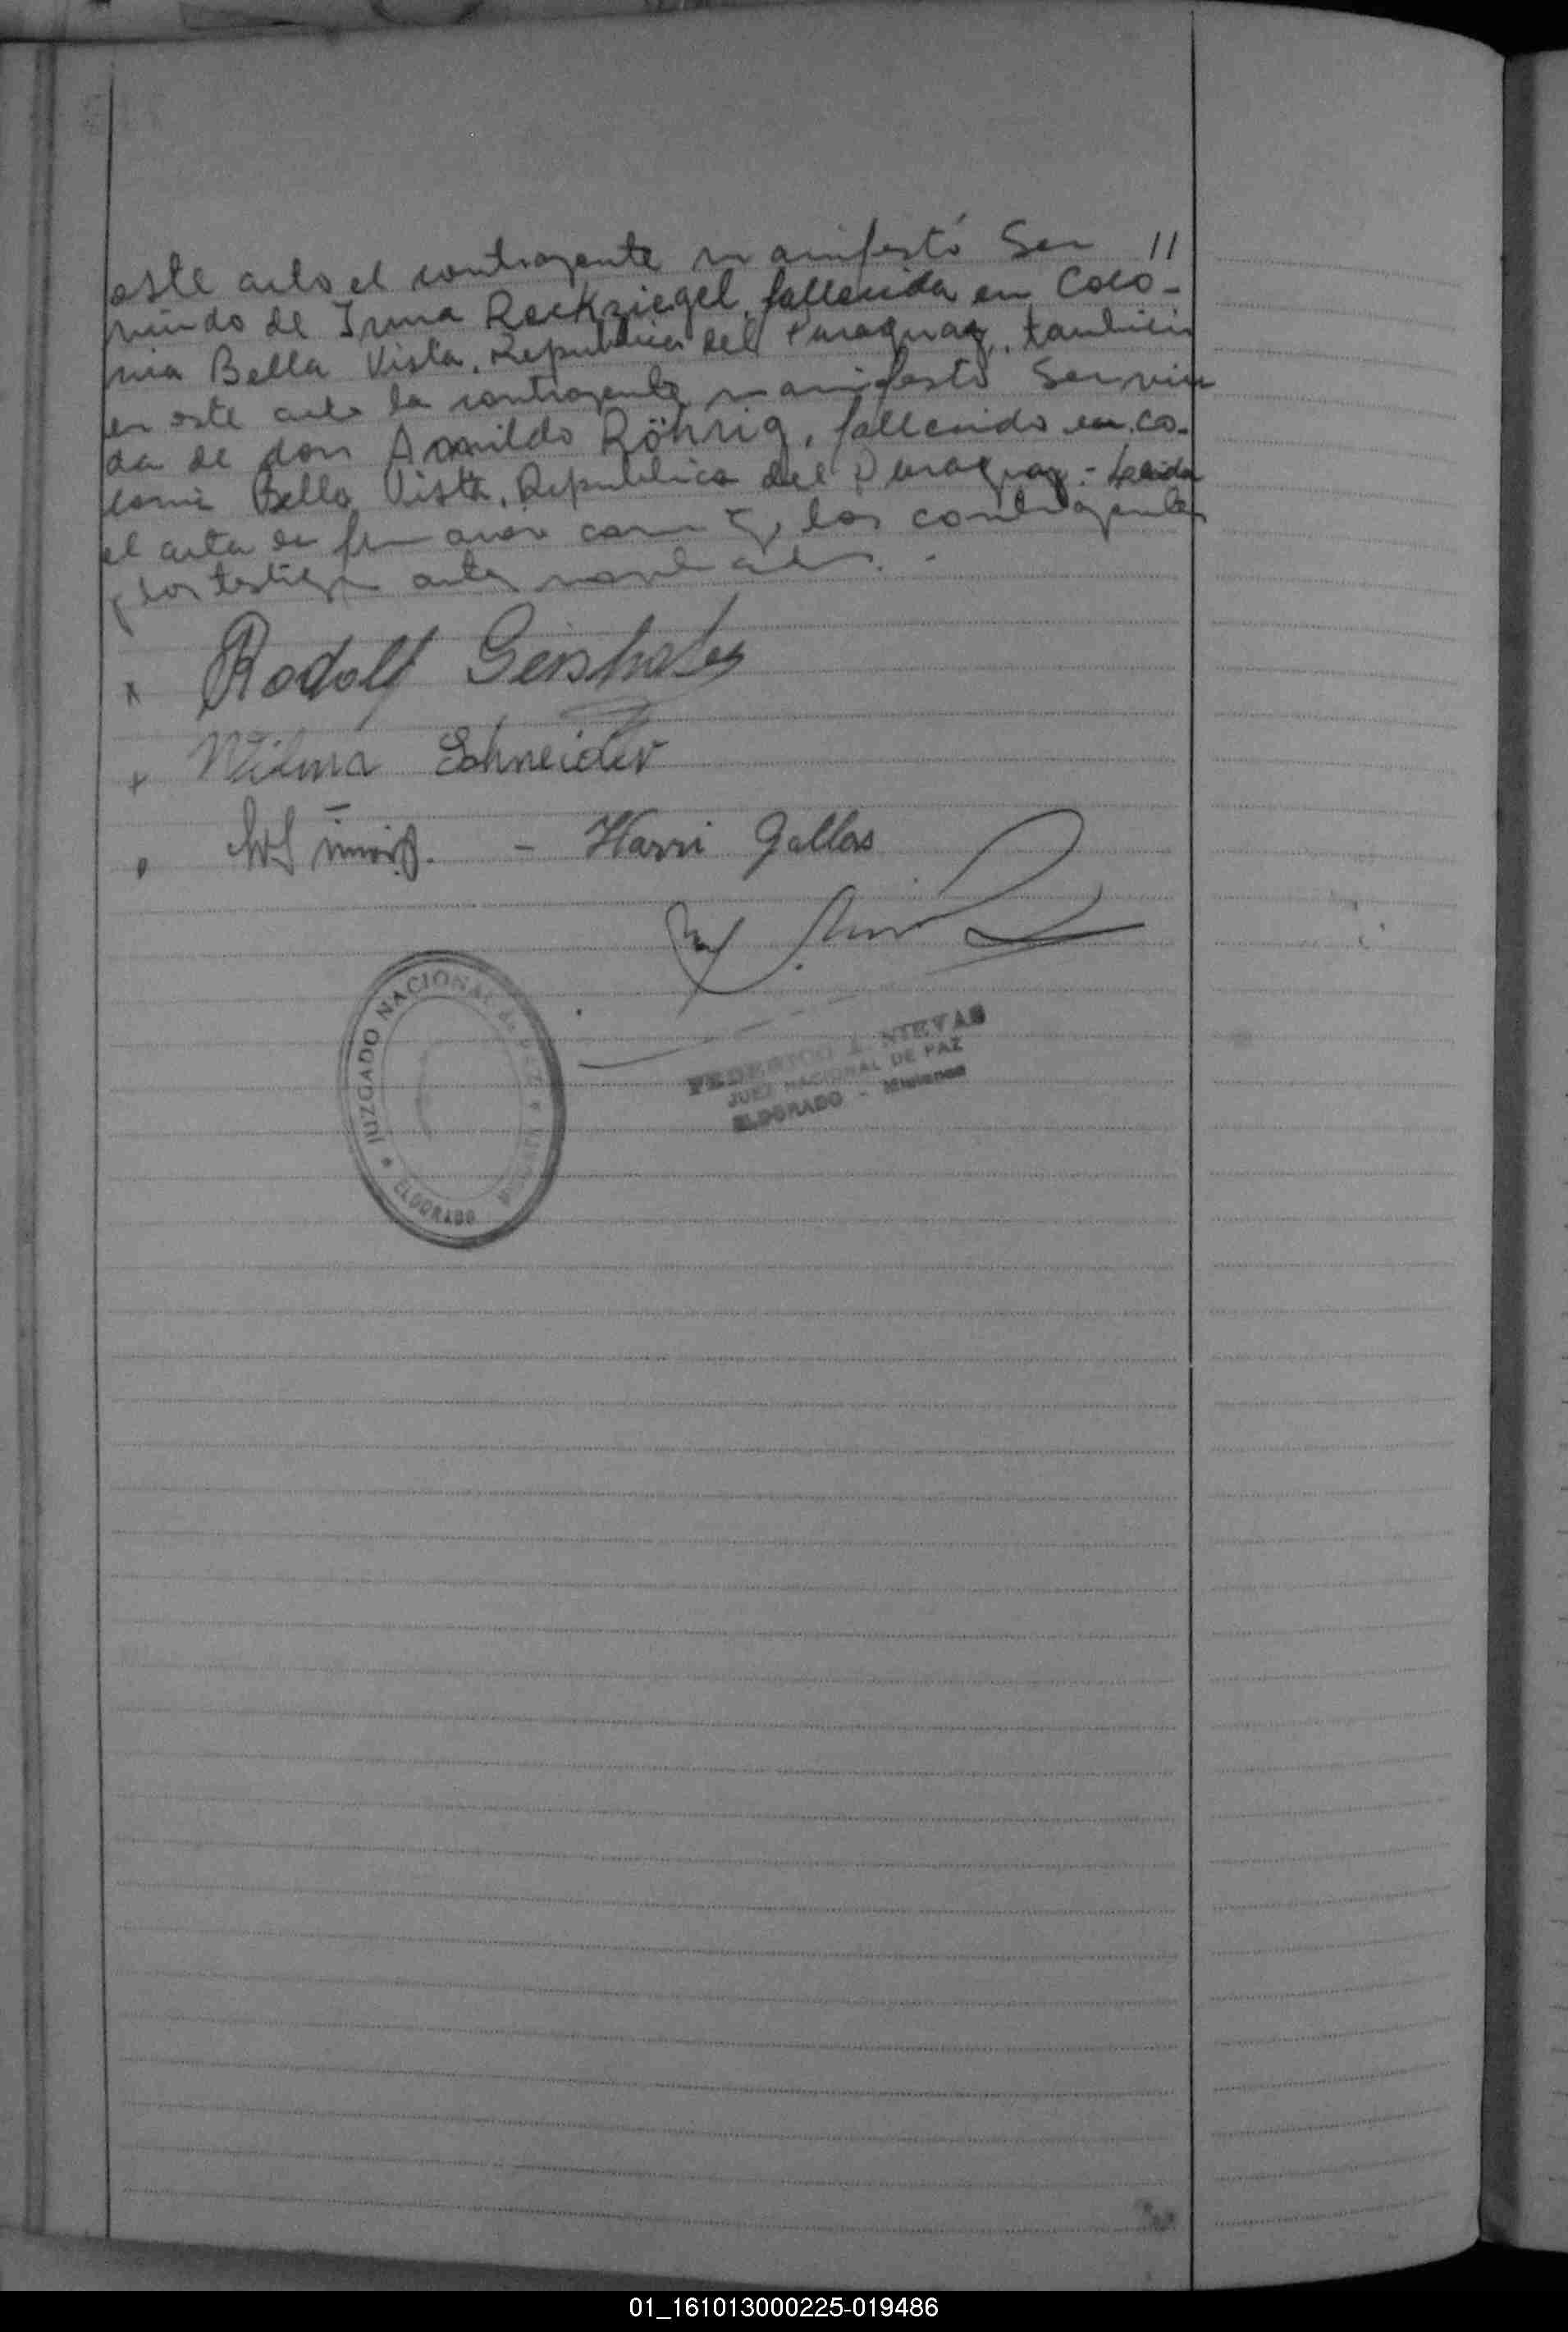 este acto el contrayente manifestó Ser //
viudo de Irma Reckziegel, fallecida en Colo-
nia Bella Vista, Republica del Paraguay, tambien
en este acto la contrayente manifestó Ser viu
da de don Arnildo Röhrig, fallecido en co-
lonia Bella Vista, Republica del Paraguay.- Leida
el acta la firmaron con migo, los contrayentes
y los testigos antes nombrados.-
x Rodolf
+ Wilma Schneider
- Harri Gallas
JUZGADO NACIONAL de PAZ
ELDORADO
FEDERICO A. NIEVAS
JUEZ NACIONAL DE PAZ
ELDORADO - Misiones
01_161013000225-019486